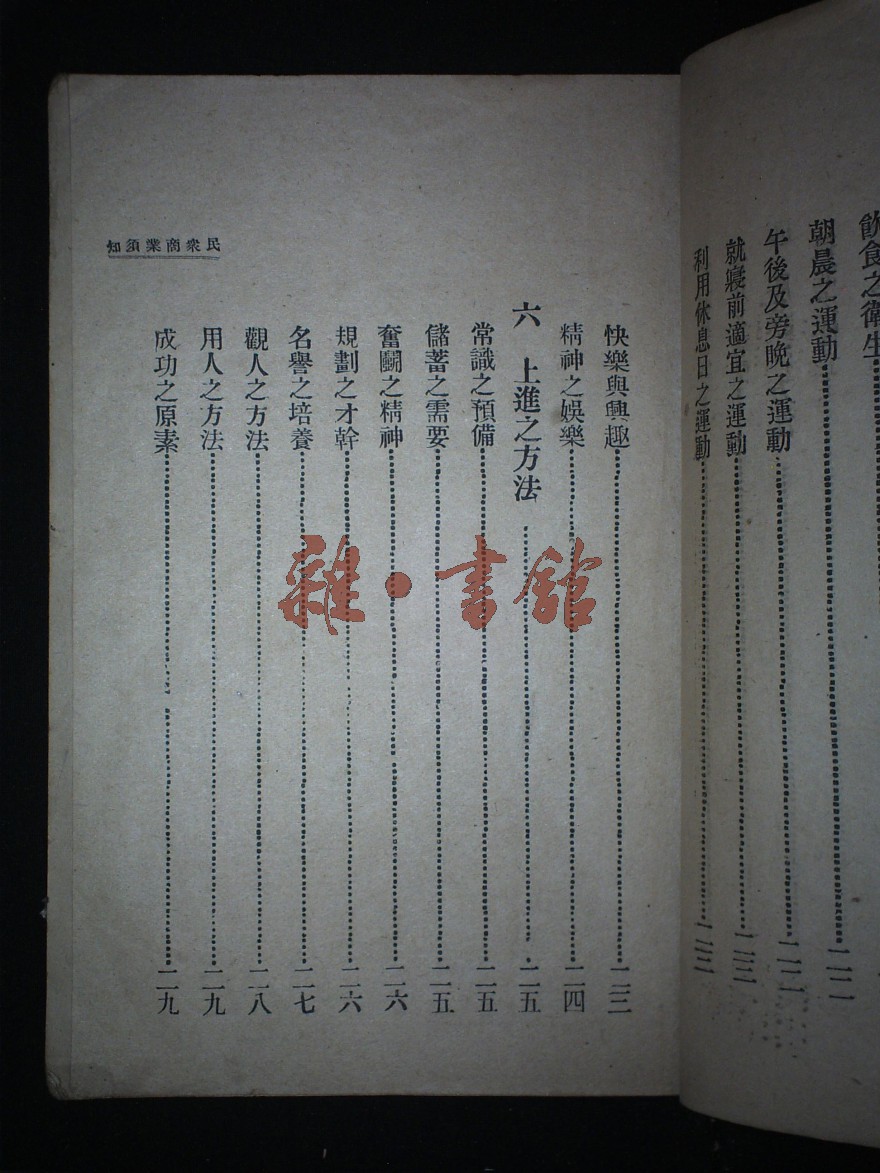 飲食之衛生
朝晨之運動……二二
午後及旁晚之運動……二二
就寢前適宜之運動……二三
利用休息日之運動……二三
快樂與興趣……二三
精神之娛樂……二四
六 上進之方法……二五
常識之預備……二五
儲蓄之需要……二五
奮鬭之精神……二六
規劃之才幹……二六
名譽之培養……二七
觀人之方法……二八
用人之方法……二九
成功之原素……二九
民衆商業須知
雜·書館